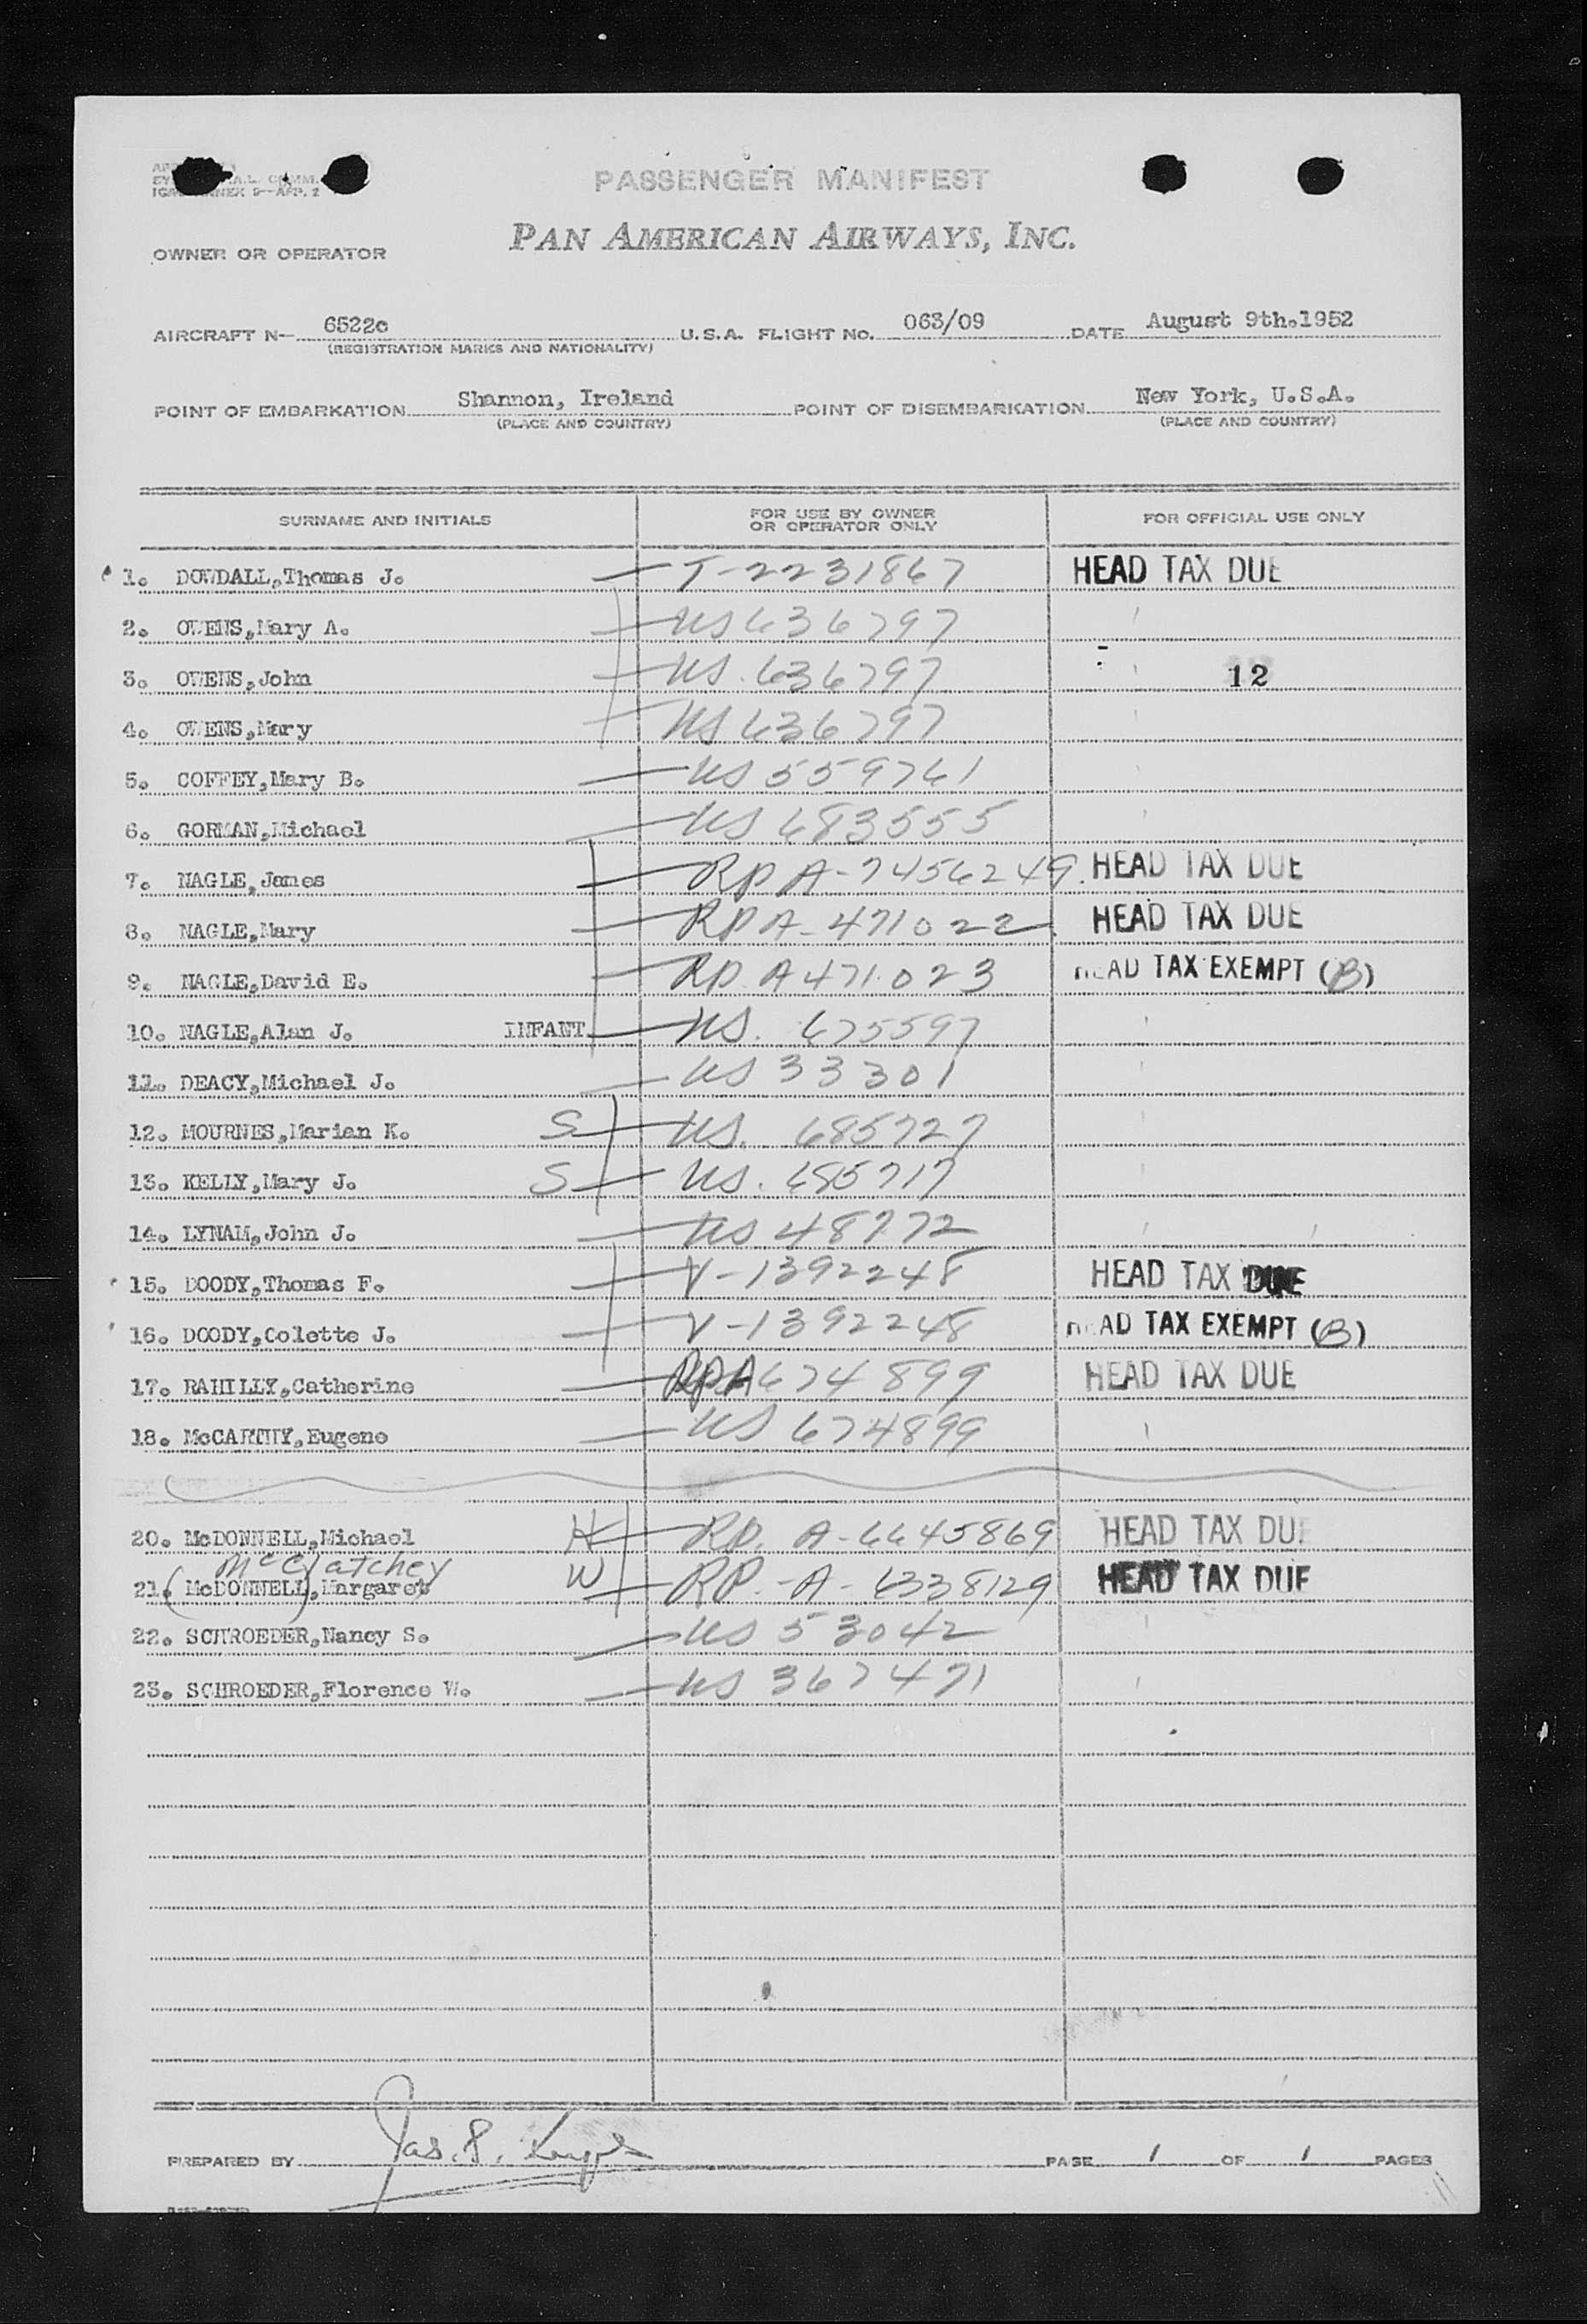 PASSENGER MANIFEST
PAN AMERICAN AIRWAYS, INC.
OWNER OR OPERATOR
AIRCRAFT N- 6522c U.S.A. FLIGHT NO. 063/09 DATE August 9th.1952
(REGISTRATION MARKS AND NATIONALITY)
POINT OF EMBARKATION Shannon, Ireland POINT OF DISEMBARKATION New York, U.S.A.
(PLACE AND COUNTRY) (PLACE AND COUNTRY)
SURNAME AND INITIALS FOR USE BY OWNER OR OPERATOR ONLY FOR OFFICIAL USE ONLY
1. DOWDALL,Thomas J. T-2231867 HEAD TAX DUE
2. OWENS,Mary A. US 636797
3. OWENS,John US. 636797 12
4. OWENS,Mary US 636797
5. COFFEY,Mary B. US 559761
6. GORMAN,Michael US 683555
7. NAGLE,James RP A-7456249. HEAD TAX DUE
8. NAGLE,Mary RP A-471022. HEAD TAX DUE
9. NAGLE,David E. RP. A471023 HEAD TAX EXEMPT (B)
10. NAGLE,Alan J. INFANT US. 675597
11. DEACY,Michael J. US 33301
12. MOURNES,Marian K. S US. 685727
13. KELLY,Mary J. S US. 685717
14. LYNAM,John J. US 48772
15. DOODY,Thomas F. V-1392248 HEAD TAX DUE
16. DOODY,Colette J. V-1392248 HEAD TAX EXEMPT (B)
17. RAHILLY,Catherine RPA674899 HEAD TAX DUE
18. McCARTHY,Eugene US 674899
20. McDONNELL,Michael H RP. A-6645869 HEAD TAX DUE
McClatchey
21. (McDONNELL),Margaret W RP.-A-6338129 HEAD TAX DUE
22. SCHROEDER,Nancy S. US 53042
23. SCHROEDER,Florence W. US 367471
PREPARED BY Jas. PAGE 1 OF 1 PAGES